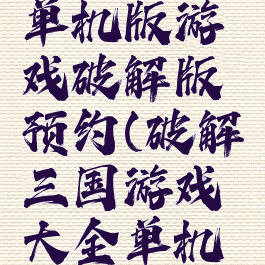 单机版游
戏破解版
预约(破解
三国游戏
大全单机